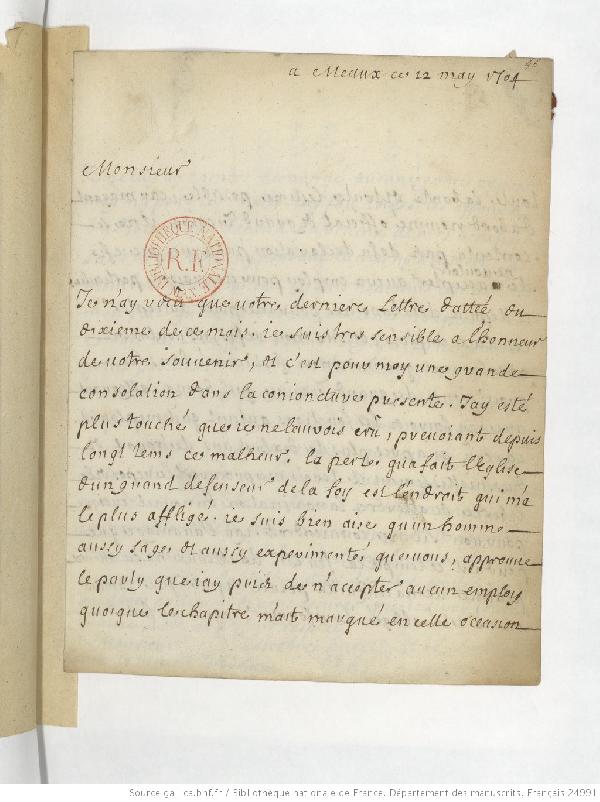 46
a Meaux ce 12 may 1704
Monsieur
BIBLIOTHEQUE NATIONALE
R.F.
Je n'ay vocü que votre derniere Lettre dattée du
dixieme de ce mois. ie suis tres sensible a lhonneur
de votre souvenir, et c'est pour moy une grande
consolation dans la conioncture presente. J'ay esté
plus touché que ie ne lauvois crü, prevoiant depuis
longt tems ce malheur. la perte qua fait l'Eglise
d'un grand defenseur de la foy est l'endroit qui m'a
le plus affligé. ie suis bien aise qu'un homme
aussy sage et aussy experimenté, que vous, approuve
le party que iay priz de n'accepter aucun employ
quoique le chapitre m'ait marqué en celle occasion
Source gallica.bnf.fr / Bibliothèque nationale de France. Département des manuscrits. Français 24991